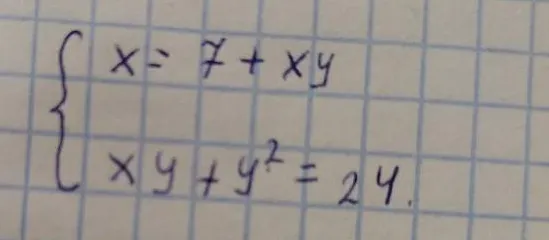 { x = 7 + xy
xy + y² = 24.